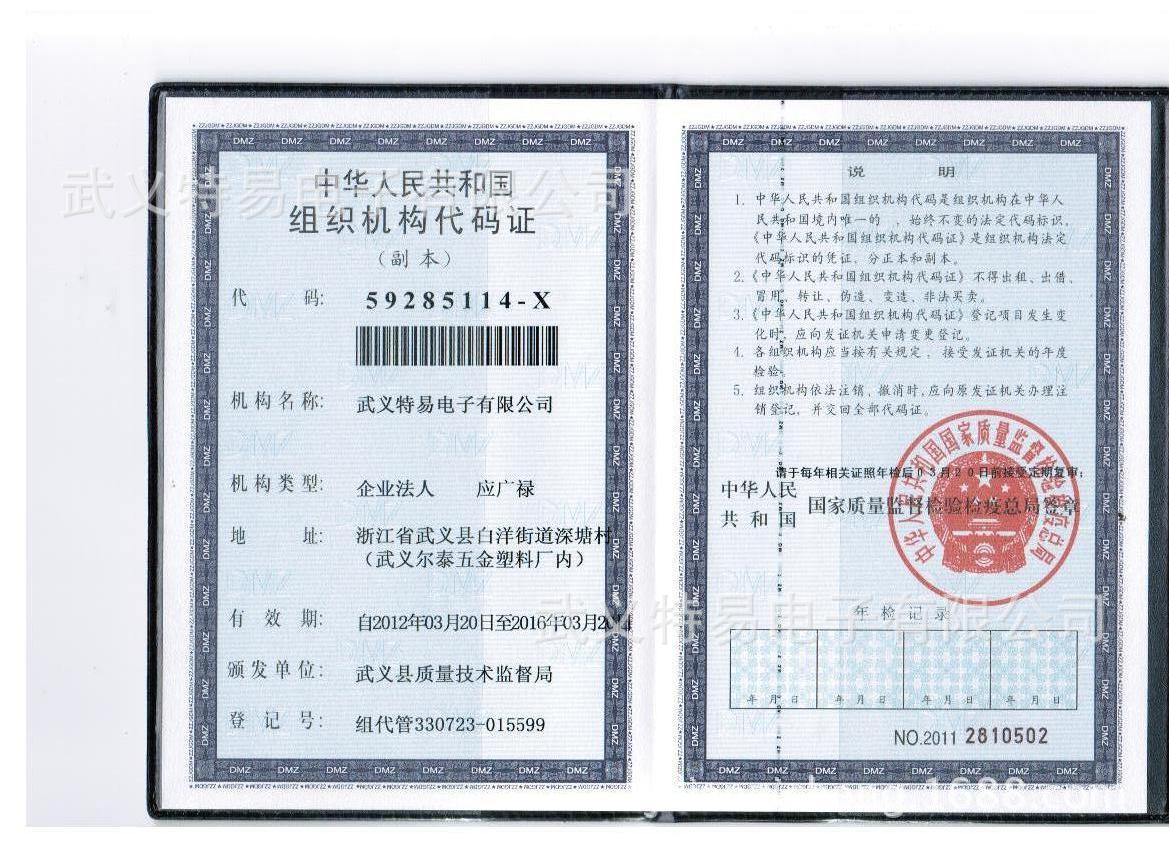 中华人民共和国
组织机构代码证
（副 本）
代 码: 59285114-X
机构名称: 武义特易电子有限公司
机构类型: 企业法人 应广禄
地 址: 浙江省武义县白洋街道深塘村
（武义尔泰五金塑料厂内）
有 效 期: 自2012年03月20日至2016年03月20日
颁发单位: 武义县质量技术监督局
登 记 号: 组代管330723-015599
说 明
1. 中华人民共和国组织机构代码是组织机构在中华人
民共和国境内唯一的 、始终不变的法定代码标识，
《中华人民共和国组织机构代码证》是组织机构法定
代码标识的凭证，分正本和副本。
2.《中华人民共和国组织机构代码证》不得出租、出借、
冒用、转让、伪造、变造、非法买卖。
3.《中华人民共和国组织机构代码证》登记项目发生变
化时，应向发证机关申请变更登记。
4. 各组织机构应当按有关规定 ，接受发证机关的年度
检验。
5. 组织机构依法注销、撤消时,应向原发证机关办理注
销登记，并交回全部代码证。
请于每年相关证照年检后03月20日前接受定期复审;
中华人民
共 和 国 国家质量监督检验检疫总局签章
中华人民共和国国家质量监督检验检疫总局
年 检 记 录
年 月 日 年 月 日 年 月 日 年 月 日
NO.2011 2810502
武义特易电子有限公司
武义特易电子有限公司
DMZ